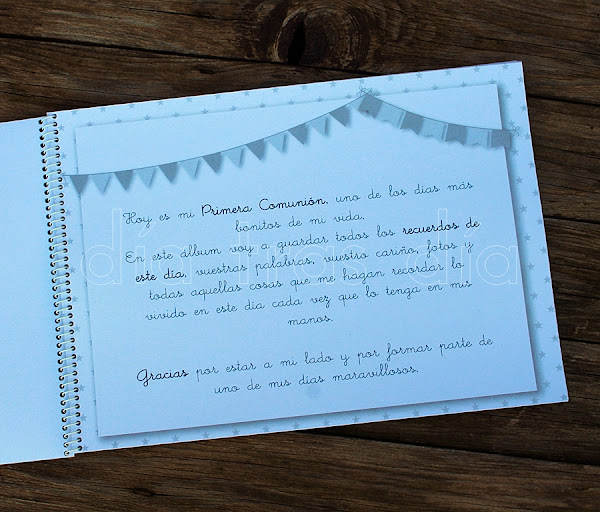 Hoy es mi Primera Comunión, uno de los días más
bonitos de mi vida.
En este álbum voy a guardar todos los recuerdos de
este día, vuestras palabras, vuestro cariño, fotos y
todas aquellas cosas que me hagan recordar lo
vivido en este día cada vez que lo tenga en mis
manos.
Gracias por estar a mi lado y por formar parte de
uno de mis días maravillosos.